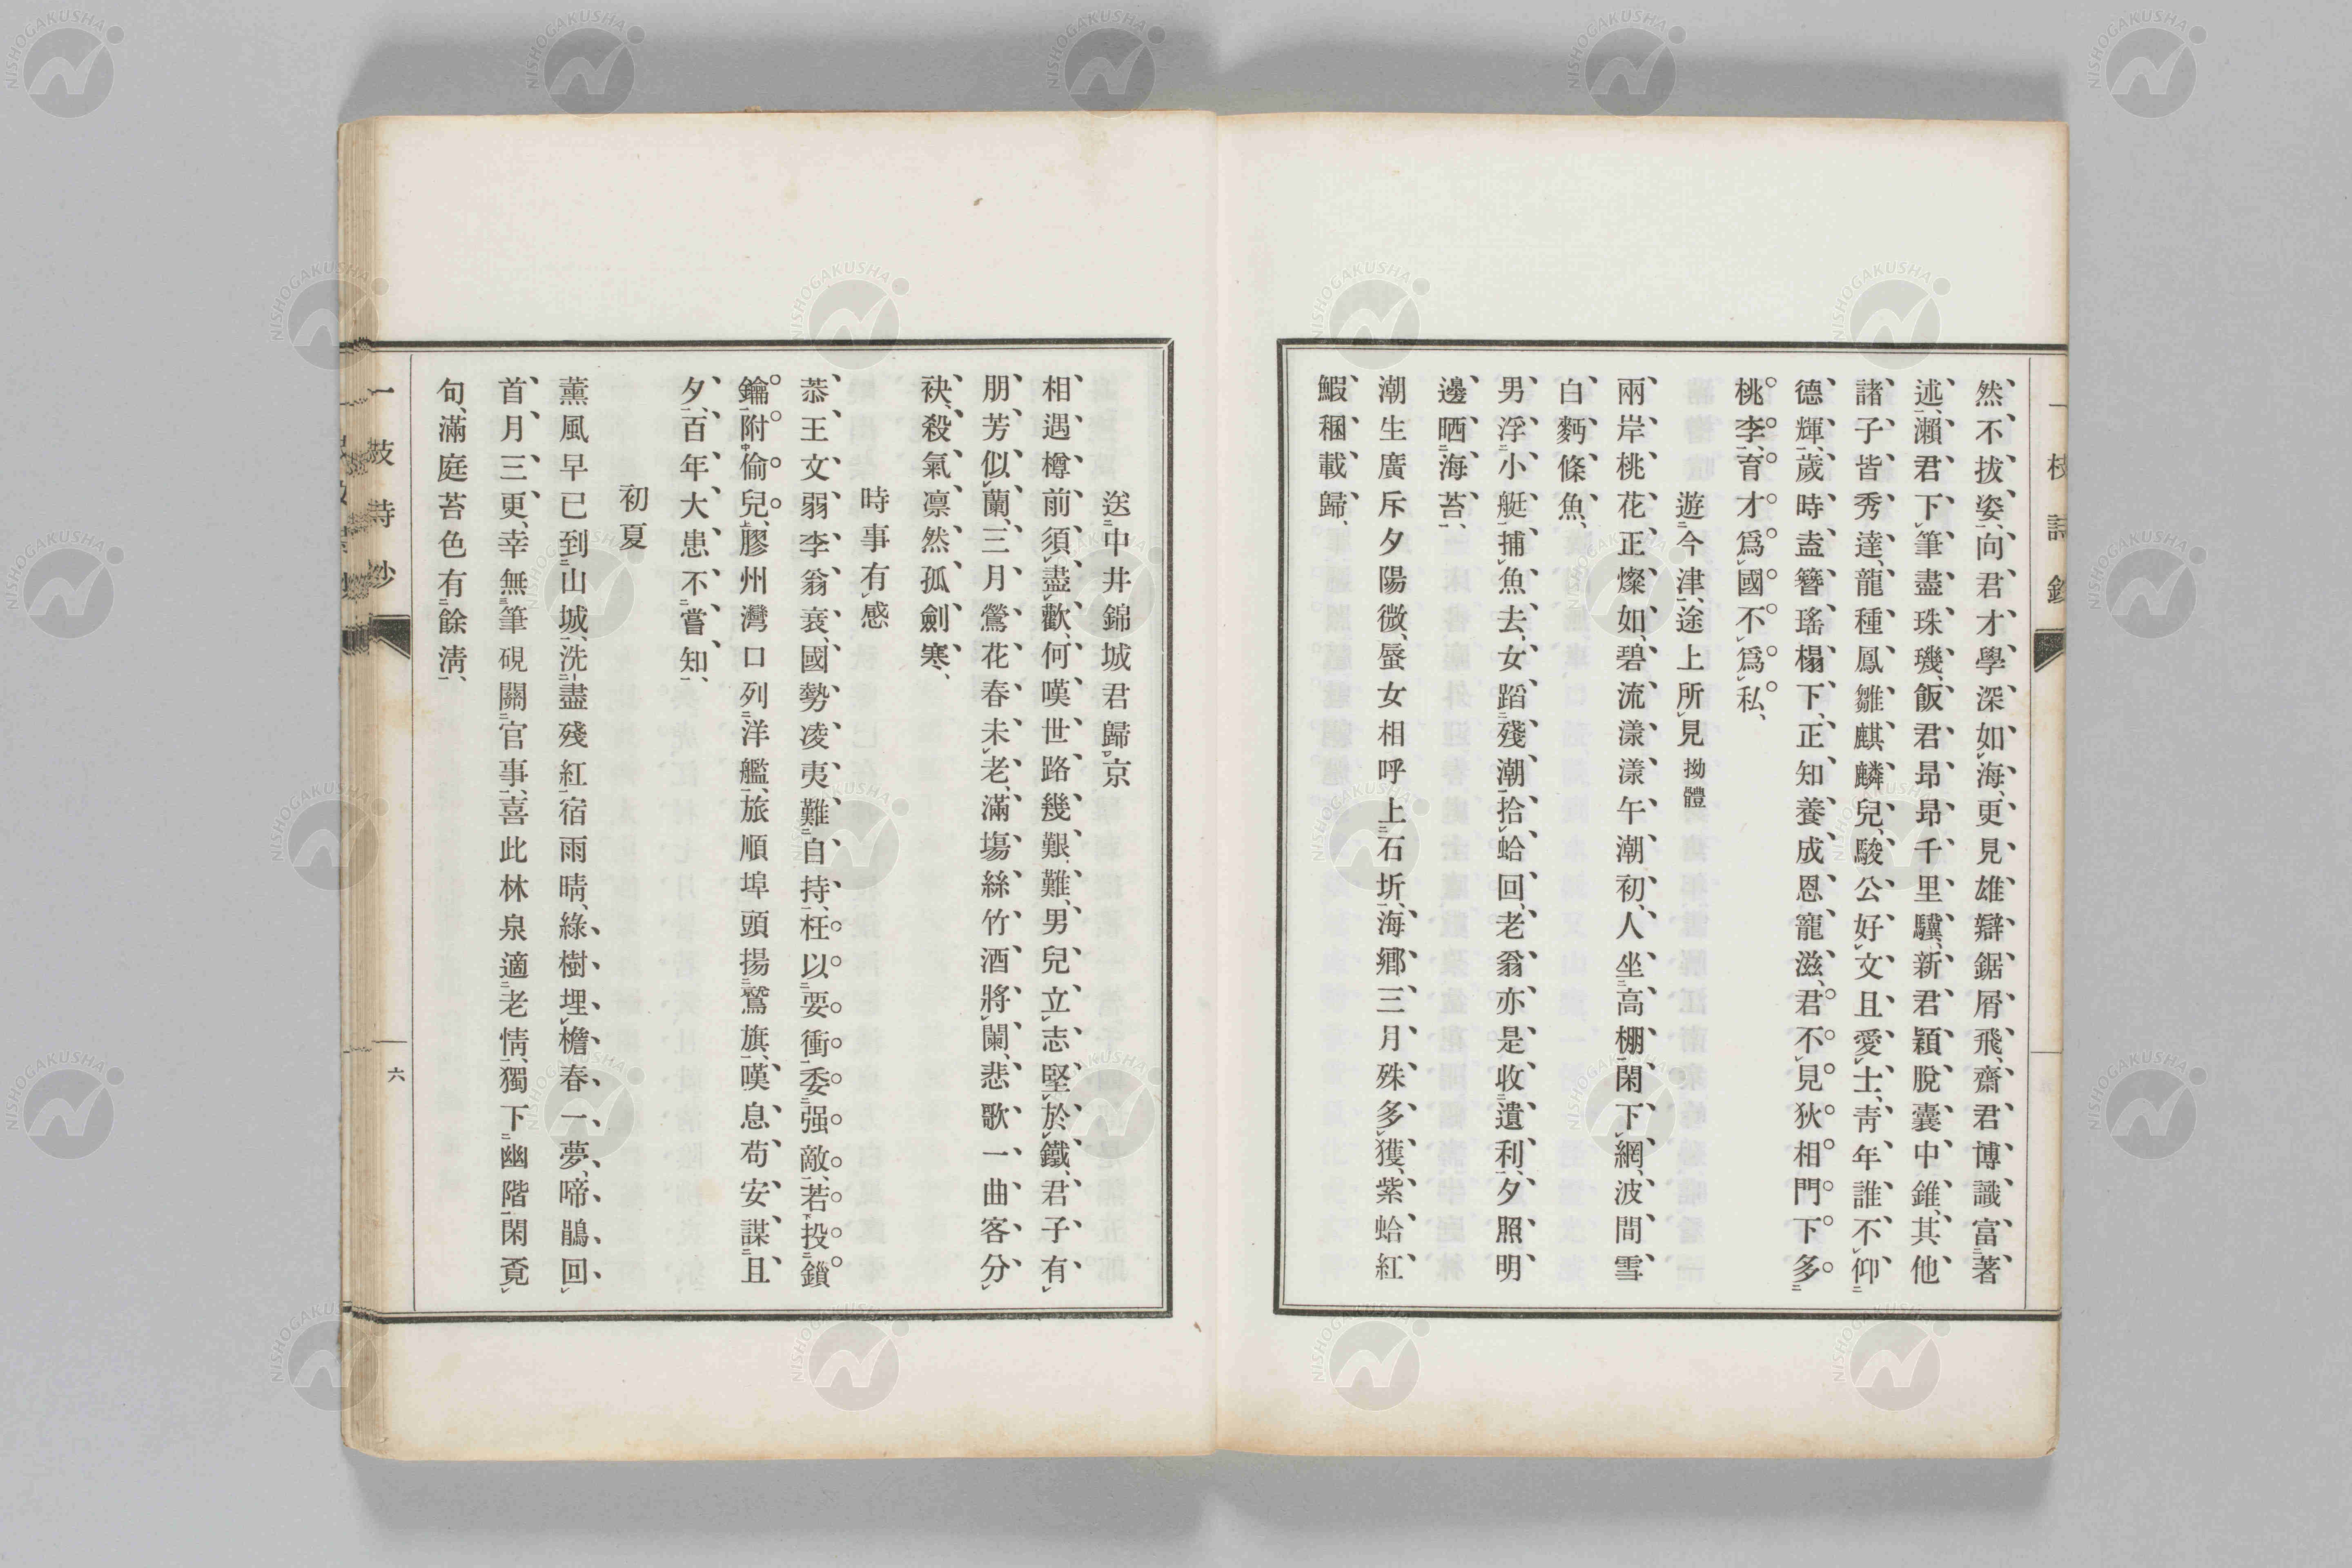 然不拔姿、向君才學深如海、更見雄辯鋸屑飛、齋君博識富著
述、瀨君下筆盡珠璣、飯君昂昂千里驥、新君穎脫囊中錐、其他
諸子皆秀達、龍種鳳雛麒麟兒、駿公好文且愛士、靑年誰不仰
德輝、歲時盍簪瑤榻下、正知養成恩寵滋、君不見狄相門下多
桃李、育才爲國不爲私、
遊今津、途上所見 拗體
兩岸桃花正燦如、碧流漾漾午潮初、人坐高棚閑下網、波間雪
白麪條魚、
男浮小艇捕魚去、女蹈殘潮拾蛤回、老翁亦是收遺利、夕照明
邊晒海苔、
潮生廣斥夕陽微、蜑女相呼上石圻、海鄕三月殊多獲、紫蛤紅
鰕稛載歸、
送中井錦城君歸京
相遇樽前須盡歡、何嘆世路幾艱難、男兒立志堅於鐵、君子有
朋芳似蘭、三月鶯花春未老、滿塲絲竹酒將闌、悲歌一曲客分
袂、殺氣凛然孤劍寒、
時事有感
恭王文弱李翁衰、國勢凌夷難自持、枉以要衝委强敵、若投鎖
鑰附偷兒、膠州灣口列洋艦、旅順埠頭揚鷲旗、嘆息苟安謀且
夕、百年大患不嘗知、
初夏
薰風早已到山城、洗盡殘紅宿雨晴、綠樹埋檐春一夢、啼鵑回
首月三更、幸無筆硯關官事、喜此林泉適老情、獨下幽階閑覔
句、滿庭苔色有餘淸、
六